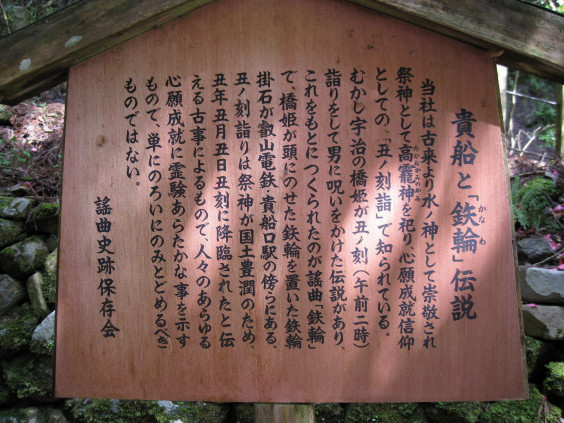 貴船と「鉄輪」伝説
かなわ
当社は古来より水ノ神として崇敬され
祭神として高龗神を祀り、心願成就信仰
たかおかみのかみ
としての「丑ノ刻詣」で知られている。
むかし宇治の橋姫が丑ノ刻(午前二時)
詣りをして男に呪いをかけた伝説があり、
これをもとにつくられたのが謡曲「鉄輪」
で、橋姫が頭にのせた鉄輪を置いた鉄輪
掛石が叡山電鉄・貴船口駅の傍らにある。
丑ノ刻詣りは祭神が国土豊潤のため、
丑年丑月丑日丑刻に降臨されたと伝
える古事によるもので、人々のあらゆる
心願成就に霊験あらたかな事を示す
もので、単にのろいにのみとどめるべき
ものではない。
謡曲史跡保存会